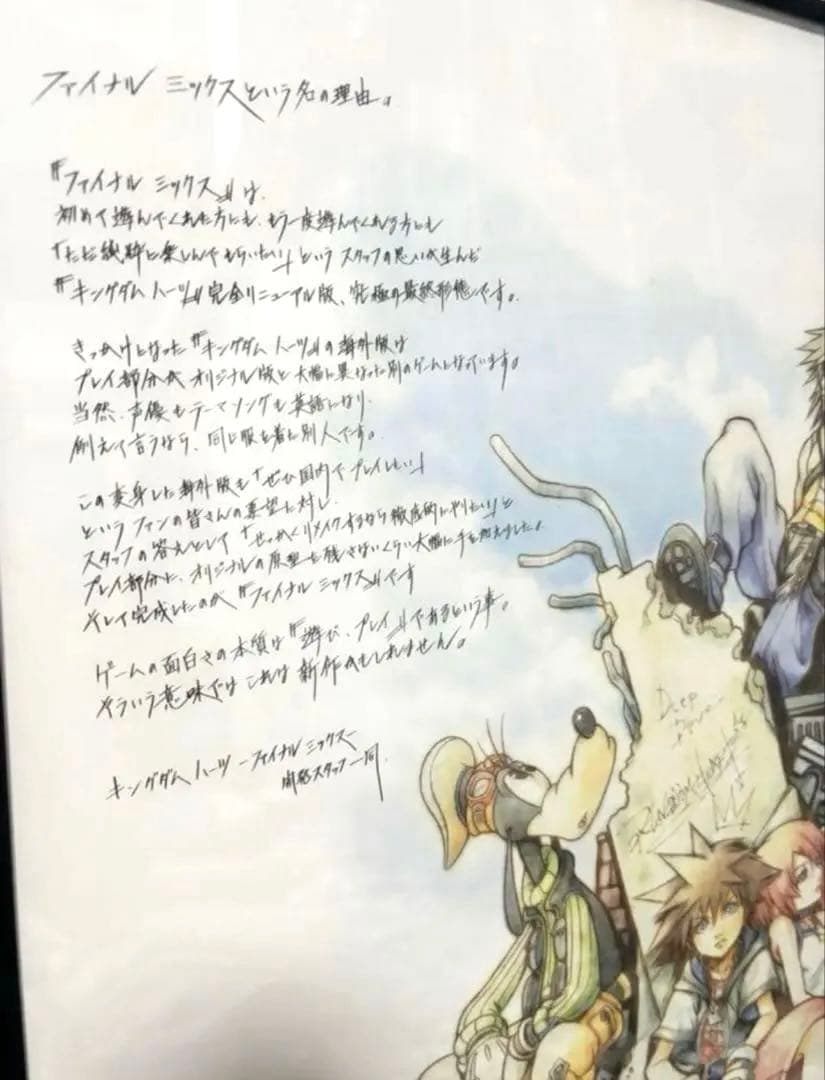 ファイナル ミックスという名の理由。
『ファイナル ミックス』は、
初めて遊んでくれた方にも、もう一度遊んでくれる方にも
「ただ純粋に楽しんでもらいたい」という スタッフの思いが生んだ
『キングダム ハーツ』完全リニューアル版、究極の最終形態です。
きっかけとなった『キングダム ハーツ』の海外版は
プレイ部分が オリジナル版と大幅に異なった別のゲームになっています。
当然、声優もテーマソングも英語になり、
例えて言うなら、同じ服を着た別人です。
この変身した海外版を「ぜひ国内でプレイしたい」
という ファンの皆さんの要望に対し、
スタッフの答えとして「せっかくリメイクするなら徹底的にやりたい」と
プレイ部分に、オリジナルの原型を残さないくらい大幅に手を加えました。
そして完成したのが『ファイナル ミックス』です
ゲームの面白さの本質は『遊び、プレイ』であるという事。
そういう意味では これは 新作かもしれません。
キングダム ハーツ -ファイナル ミックス-
開発スタッフ一同
Deep